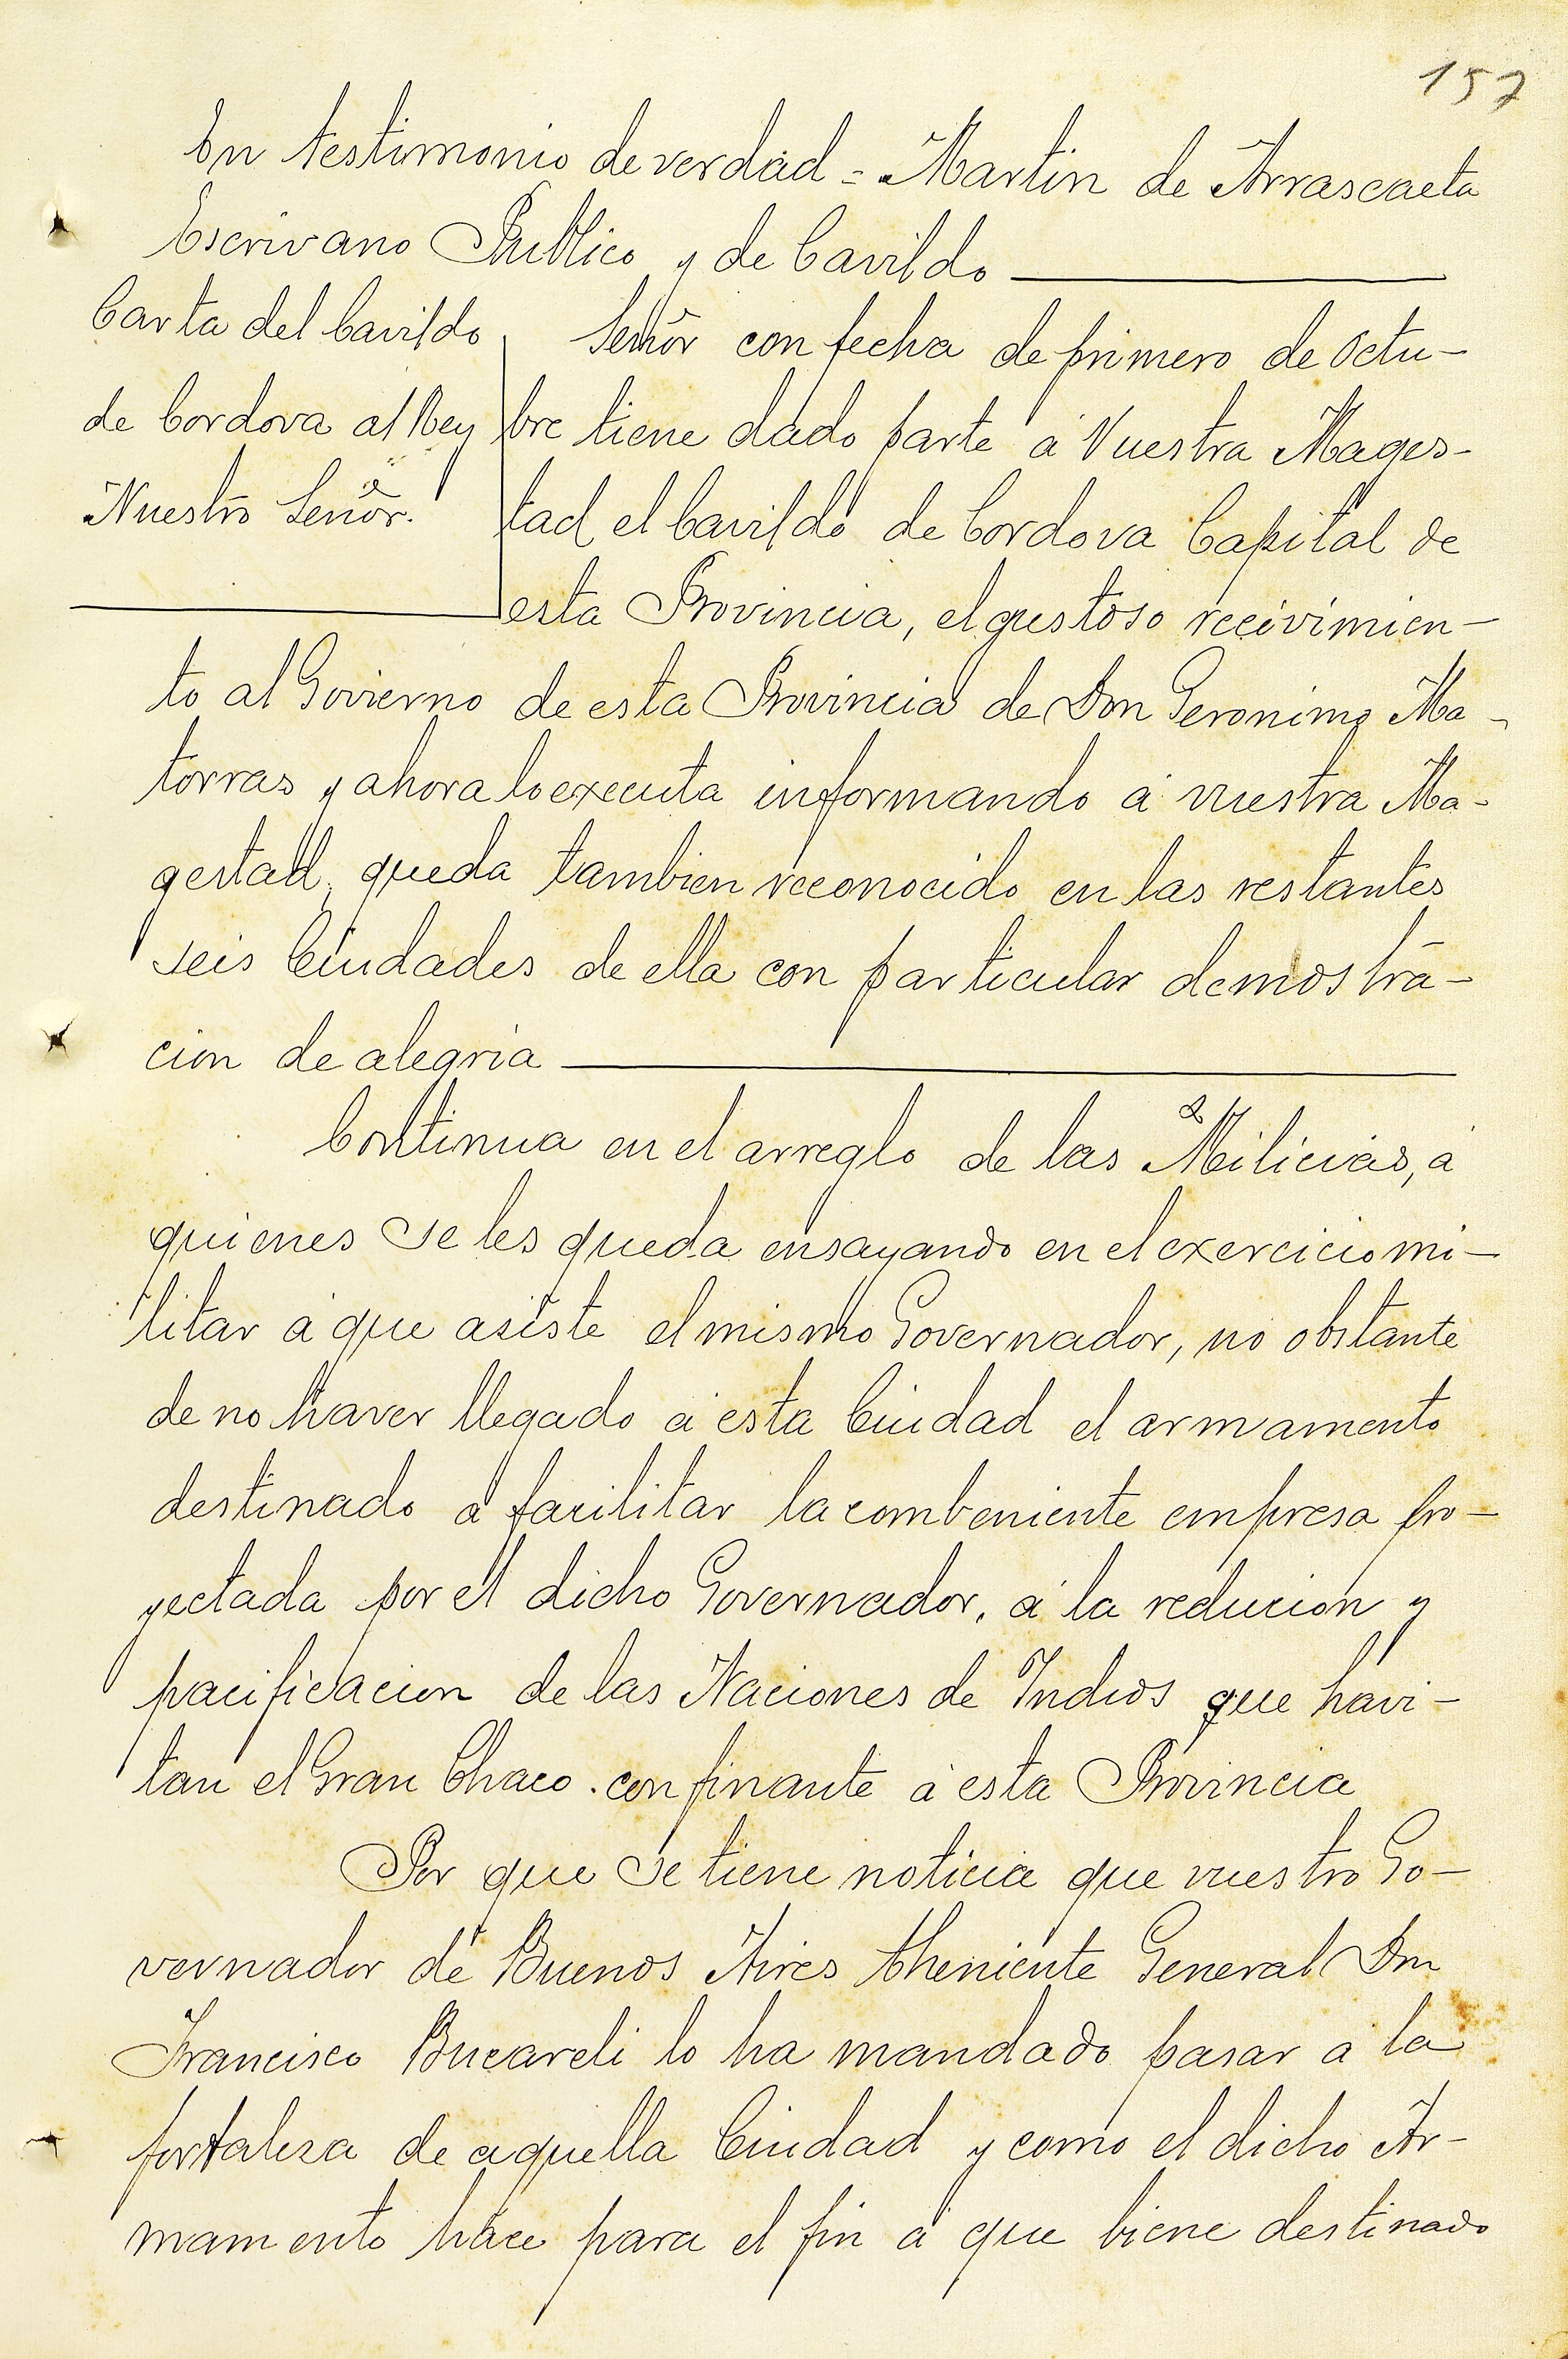 157
En testimonio de verdad = Martin de Arrascaeta
Escrivano Publico y de Cavildo
Carta del Cavildo
de Cordova al Rey
Nuestro Señor.
Señor con fecha de primero de Octu-
bre tiene dado parte á Vuestra Mages-
tad el Cavildo de Cordova Capital de
esta Provincia, el gustoso recivimien-
to al Govierno de esta Provincia de Don Geronimo Ma-
torras y ahora lo executa informando á vuestra Ma-
gestad, queda tambien reconocido en las restantes
seis Ciudades de ella con particular demostra-
cion de alegria
Continua en el arreglo de las Milicias, á
quienes se les queda ensayando en el exercicio mi-
litar á que asiste el mismo Governador, no obstante
de no haver llegado á esta Ciudad el armamento
destinado á facilitar la combeniente empresa pro-
yectada por el dicho Governador, á la reducion y
pacificacion de las Naciones de Indios que havi-
tan el Gran Chaco. confinante á esta Provincia
Por que se tiene noticia que vuestro Go-
vernador de Buenos Aires theniente General Dn
Francisco Bucareli lo ha mandado pasar á la
fortalesa de aquella Ciudad y como el dicho Ar-
mamento hace para el fin á que biene destinado